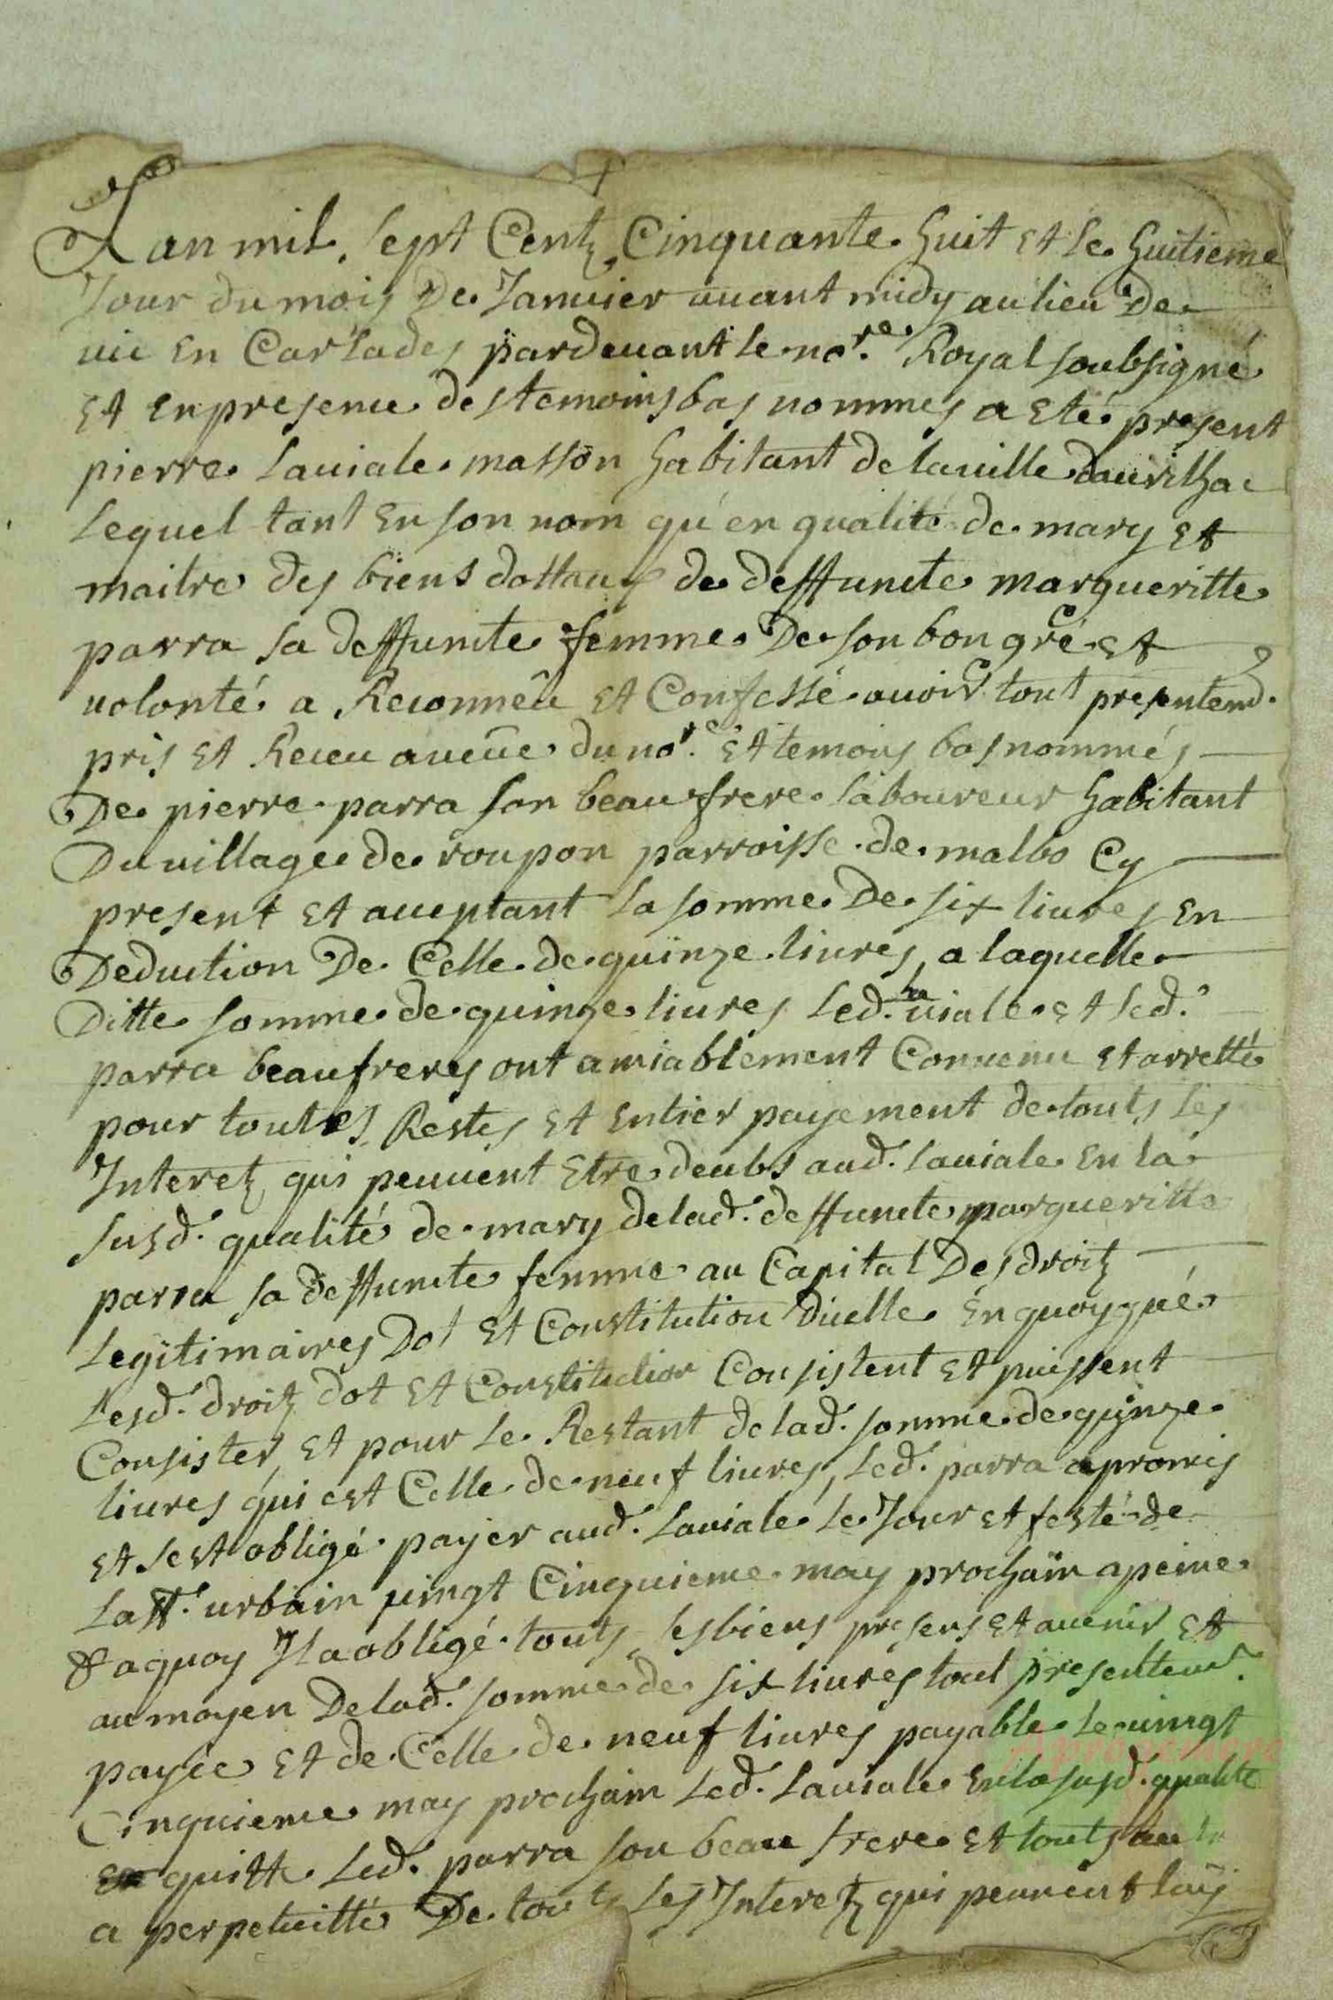 Lan mil sept Centz Cinquante huit et le huitieme
Jour du mois De Janvier avant midy au lieu De
vic En Carlades pardevant le nore Royal soubsigné
Et En presence des temoins bas nommes a eté present
pierre Laviale masson habitant de la ville daurilhac
Lequel tant En son nom qu'en qualité de mary Et
maitre des biens dottaux de deffuncte margueritte
parra sa deffuncte femme De son bon gré et
volonté a Reconneu et Confessé avoir tout presentend.
pris et Receu aveüe du nore et temoins bas nommés
De pierre parra son beaufrere laboureur habitant
Du village de roupon parroisse de malbo Cy
present et aceptant la somme De six livres En
Deduction De Celle de quinze livres, a laquelle
Ditte somme de quinze livres led. laviale et led.
parra beaufreres ont amiablement Convenu et arretté
pour toutes Restes et Entier payement de touts les
Interetz qui peuvent Etre deubs aud. laviale En la
susd. qualité de mary de lad. deffuncte margueritte
parra sa deffuncte femme au Capital Des droitz
Legitimaires Dot et Constitution Dicelle En quoy que
Lesd. droitz dot et Constitution Consistent et puissent
Consister, et pour le Restant de lad. somme de quinze
livres qui est Celle de neuf livres, led. parra a promis
et sest obligé payer aud. laviale le Jour et feste de
La st. urbain vingt Cinquieme may prochain a peine
& a quoy Il a obligé touts ses biens presens et avenir et
au moyen De lad. somme de six livres tout presentem.
payée et de Celle de neuf livres payable le vingt
Cinquieme may prochain led. Laviale En la susd. qualité
En quitte led. parra son beau frere et touts autr
a perpetuitté De touts les Interetz qui peuvent luy
Aprogemere